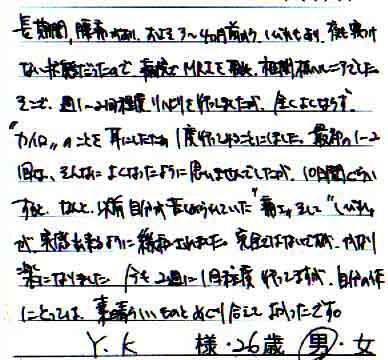 長期間、腰痛があり、およそ3〜4ヶ月前から、しびれもあり、夜も寝け
ない状態だったので、病院でMRIを取り、椎間板ヘルニアでした
そこで、週1〜2回程度リハビリを行いましたが、全くよくならず、
"カイロ"のことを耳にしたため1度行ってみることにしました。最初の1〜2
回は、そんなによくなったように思いませんでしたが、10日間ぐらい
すると、なんと、以前自分が苦しめられていた"痛み"そして"しびれ"
が、実感出来るように緩和されました。完全ではないですが、かなり
楽になりました 今も2週に1回程度行ってますが、自分の体
にとっては、素晴らしいものとめぐり合えてよかったです。
Y.K 様・26歳 男・女